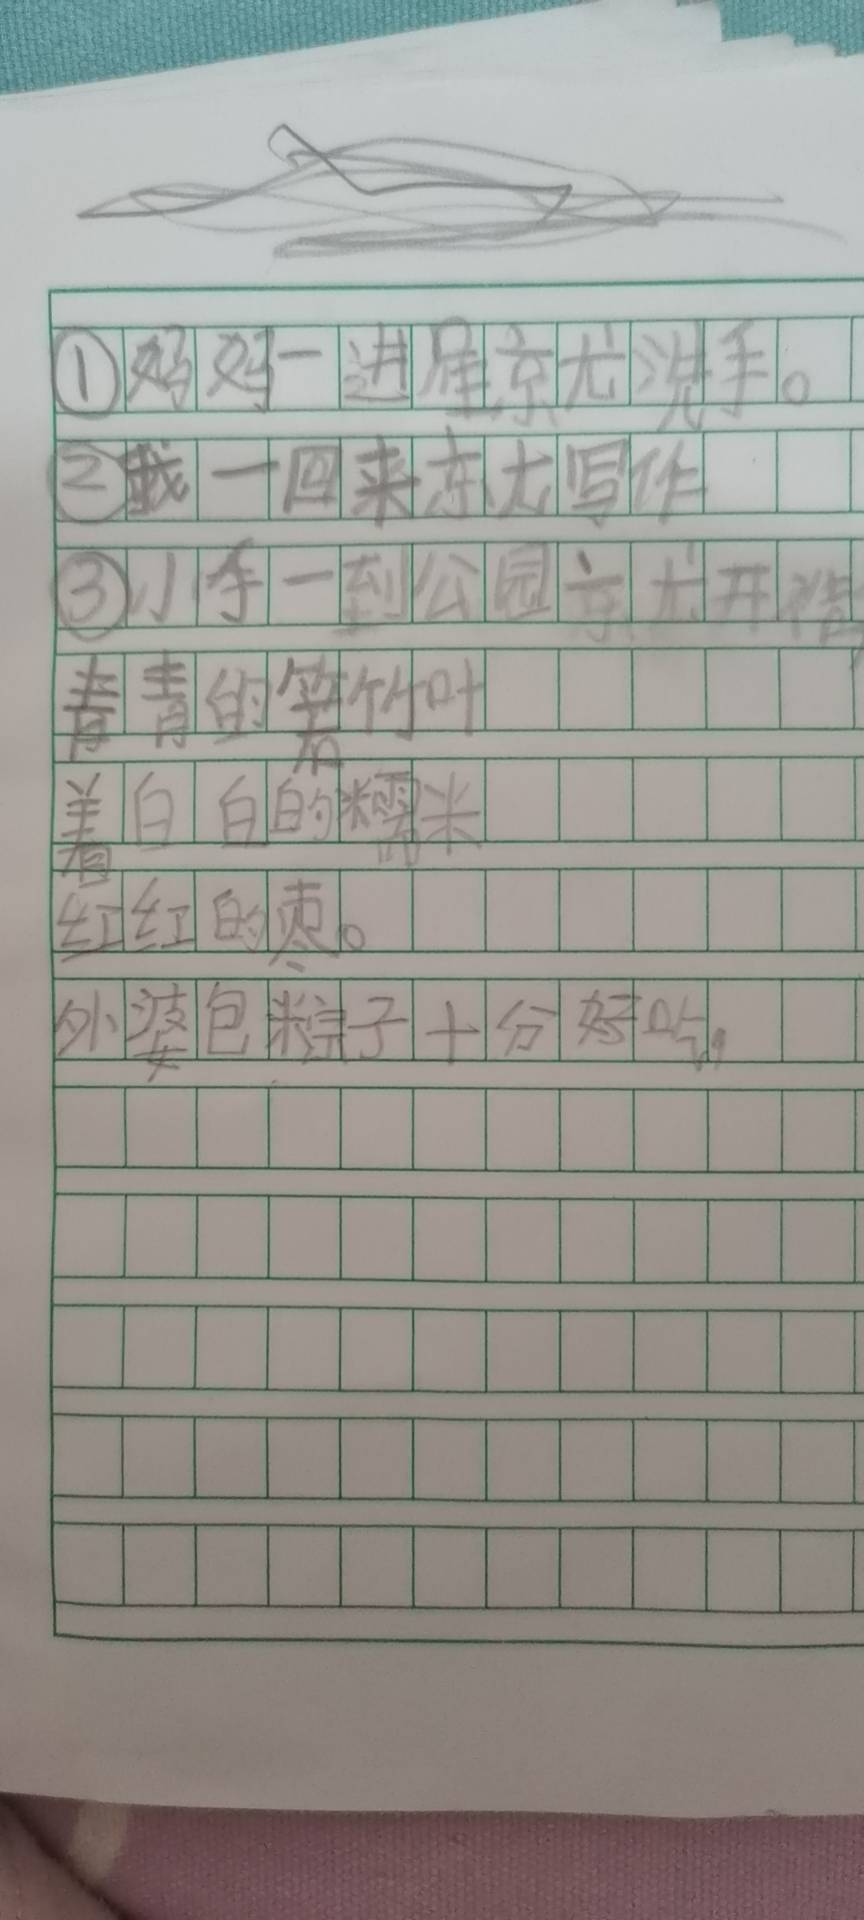 ①妈妈一进屋京尤洗手。
②我一回来京尤写作
③小手一到公园京尤开
青青的箬竹叶
着白白的糯米
红红的枣。
外婆包粽子十分好吃,